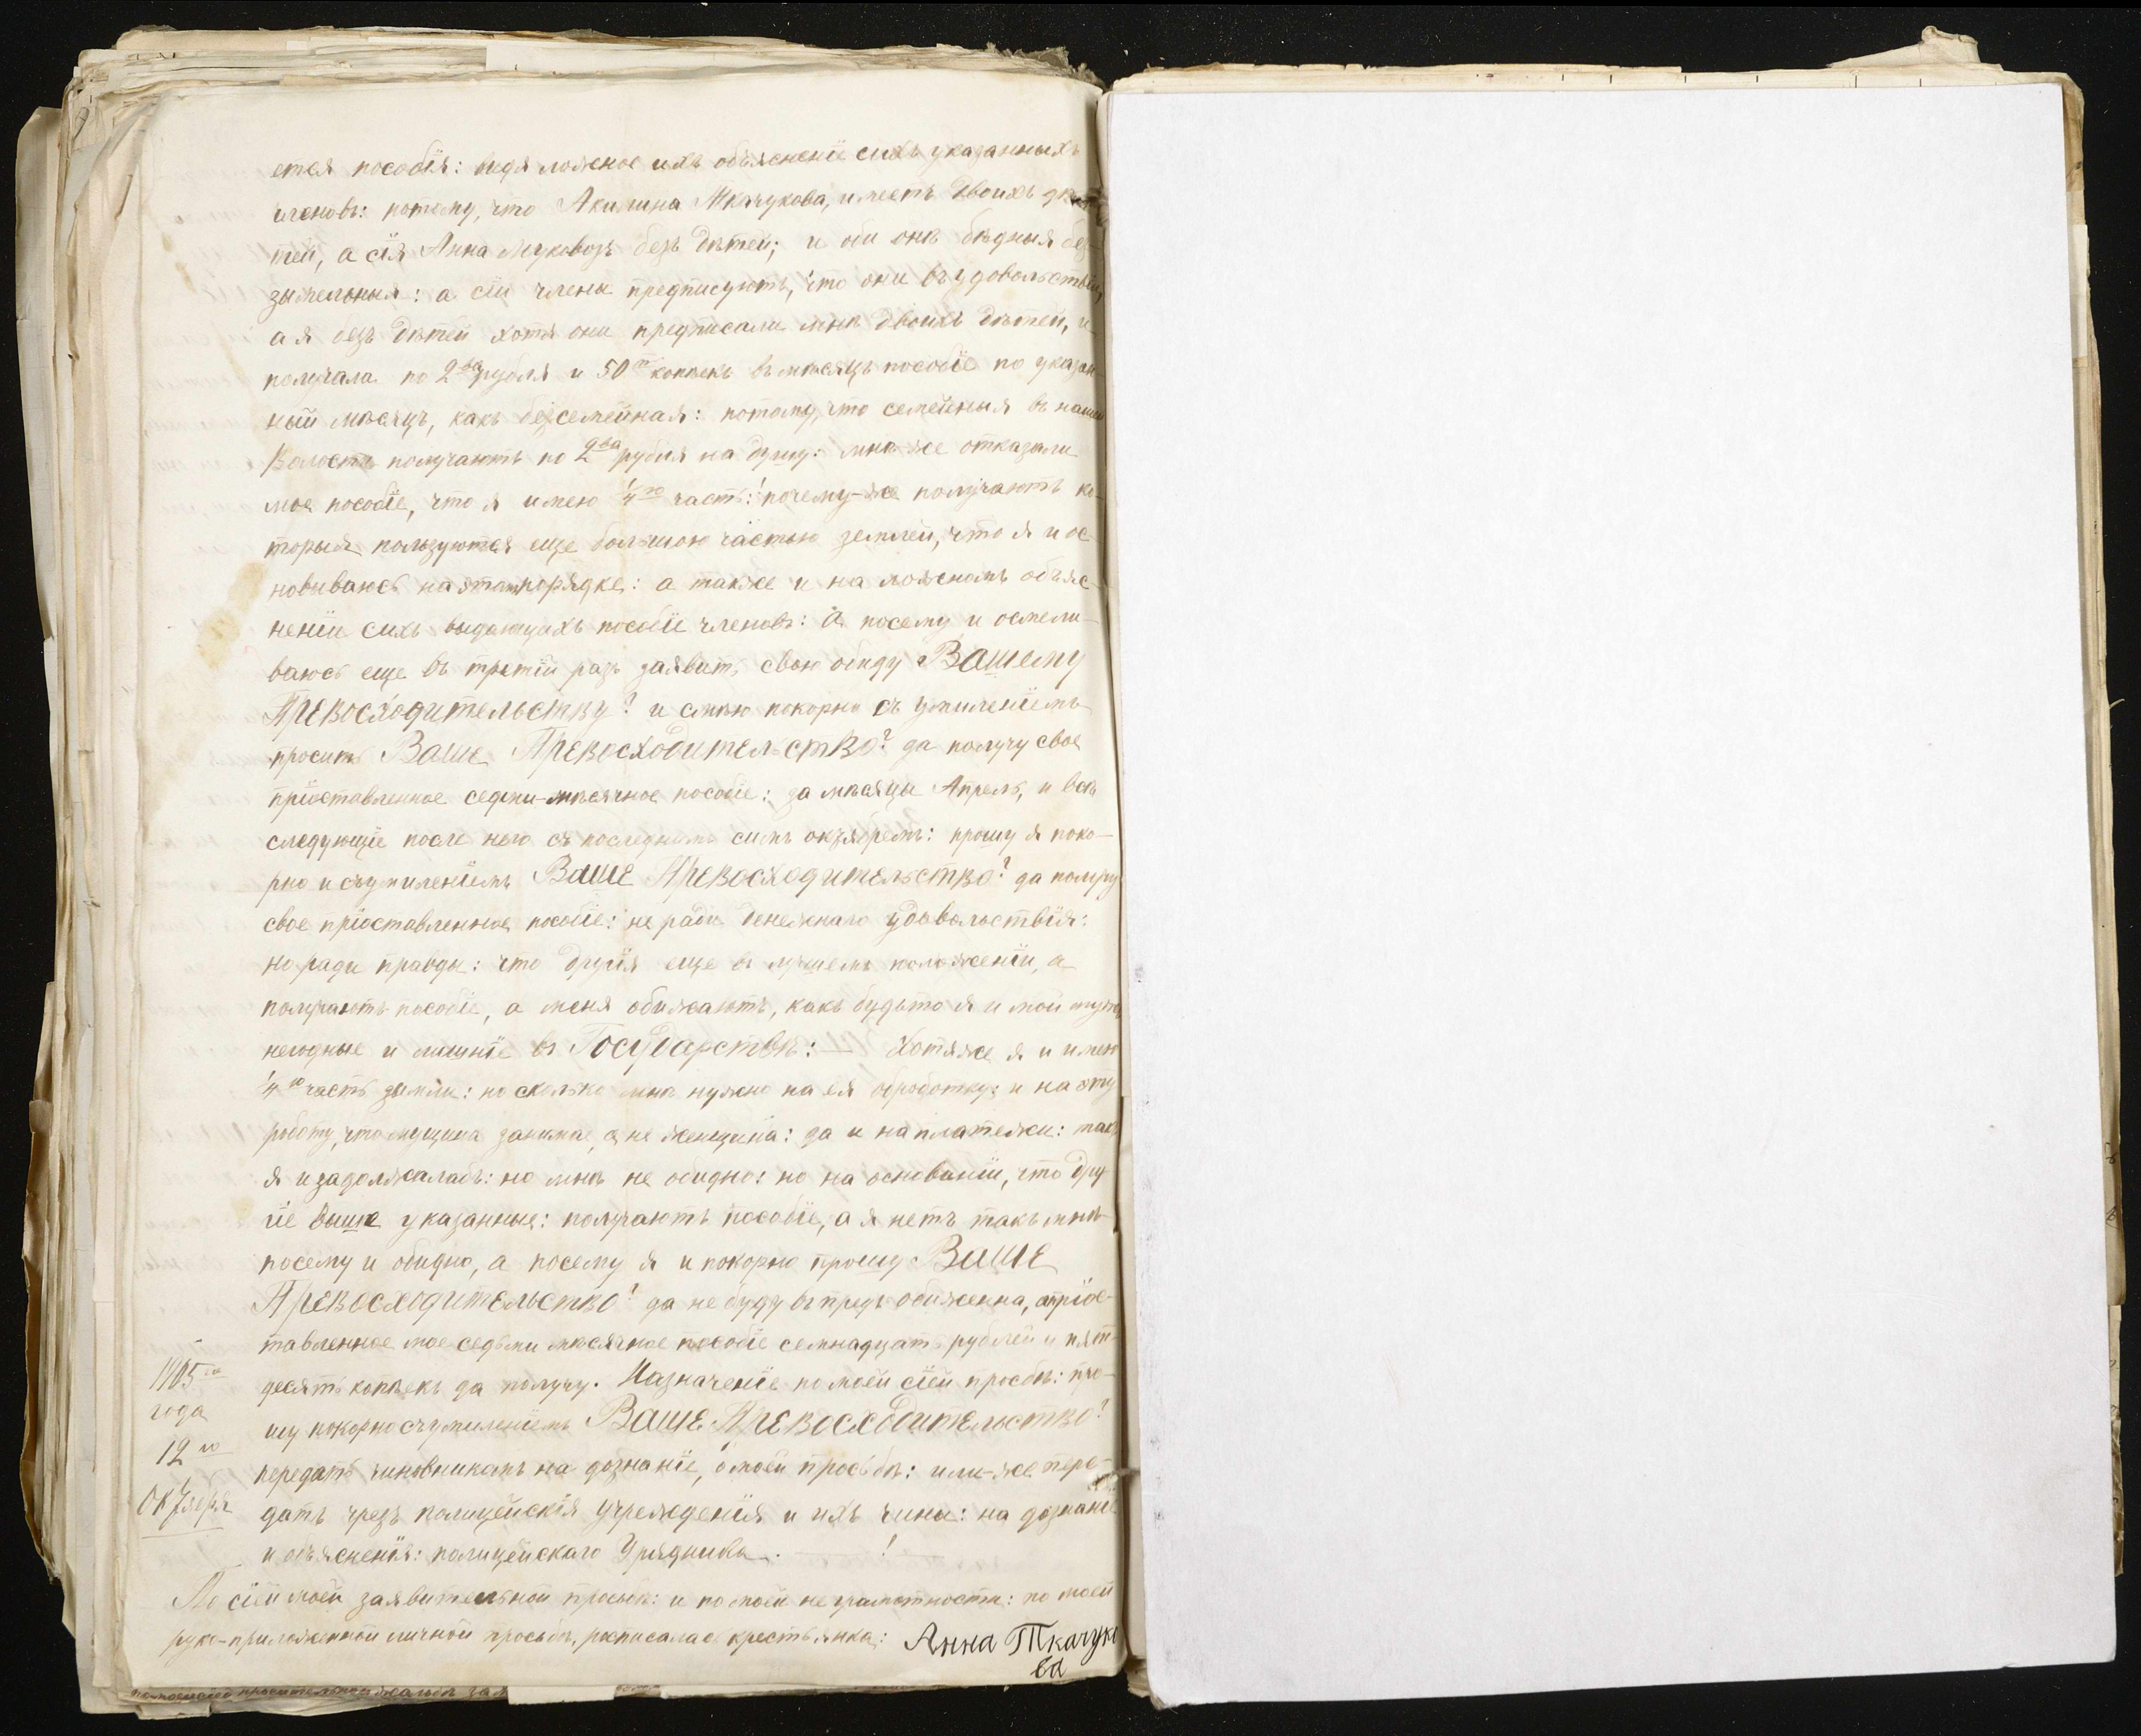 ется пособія: видя ложное ихъ объясненіе сихъ указанныхъ
членовъ: потому, что Акилина Ткачукова, имеетъ двоихъ де
тей, а сія Анна Муковозъ безъ дѣтей; и обѣ онѣ бѣдныя без
земельныя: а сіи члены предписуютъ, что они въ удовольствіи,
а я безъ дѣтей хотя они предписали мнѣ двоихъ дѣтей, и
получала по 2два рубля и 50т копѣекъ въ мѣсяцъ пособіе по указан
ный мѣсяцъ, какъ безсемейная: потому, что семейныя въ нашей
Волости получаютъ по 2два рубля на душу: мнѣ-же отказали
мое пособіе, что я имею 1/4ю часть: почему-же получаютъ ко-
торыя пользуются еще большою частью землей, что я и ос
новываюсь на этомъ порядке: а также и на ложномъ объяс-
неніи сихъ выдающихъ пособіе членовъ: А посему и осмели-
ваюсь еще въ третій разъ заявить свою обиду Вашему
Превосходительству? и смѣю покорно съ умиленіемъ
просить Ваше Превосходительство? да получу свое
пріоставленное седми-мѣсячное пособіе: за мѣсяцы Апрель, и всѣ
следующіе после него съ последнимъ симъ октябремъ: прошу я поко-
рно и съ умиленіемъ Ваше Превосходительство? да получу
свое пріоставленное пособіе: не ради денежнаго удовольствія:
но ради правды: что другія еще въ лучшемъ положеніи, а
получаютъ пособіе, а меня обижаютъ, какъ будьто я и мой мужъ
негодные и лишніе въ Государствѣ: — Хотя же я и имею
1/4ю часть земли: но сколько мнѣ нужно на ея обработку: и на эту
роботу, что мущина занимае, а не женщина: да и на платежи: такъ
я и задолжалась: но мнѣ не обидно: но на основаніи, что дру
гіе выше указанные: получаютъ пособіе, а я нетъ такъ мнѣ
посему и обидно, а посему я и покорно прошу Ваше
Превосходительство? да не буду въ предъ обиженна, а пріос-
тавленное мое седьми мѣсячное пособіе семнадцать рублей и пять
десятъ копѣекъ да получу. Назначеніе по моей сіей просбѣ: про-
шу покорно съ умиленіемъ Ваше Превосходительство?
передать чиновникамъ на дознаніе, о моей просьбѣ: или-же пере-
дать чрезъ полицейскія учрежденія и ихъ чины: на дознаніе
и объясненія: полицейскаго Урядника. — !
1905го
года
12го
Октября
По сіей моей заявительной просьбѣ: и по моей не грамотности: по моей
руко-приложенной личной просьбѣ, росписалась крестьянка: Анна Ткачуко
ва